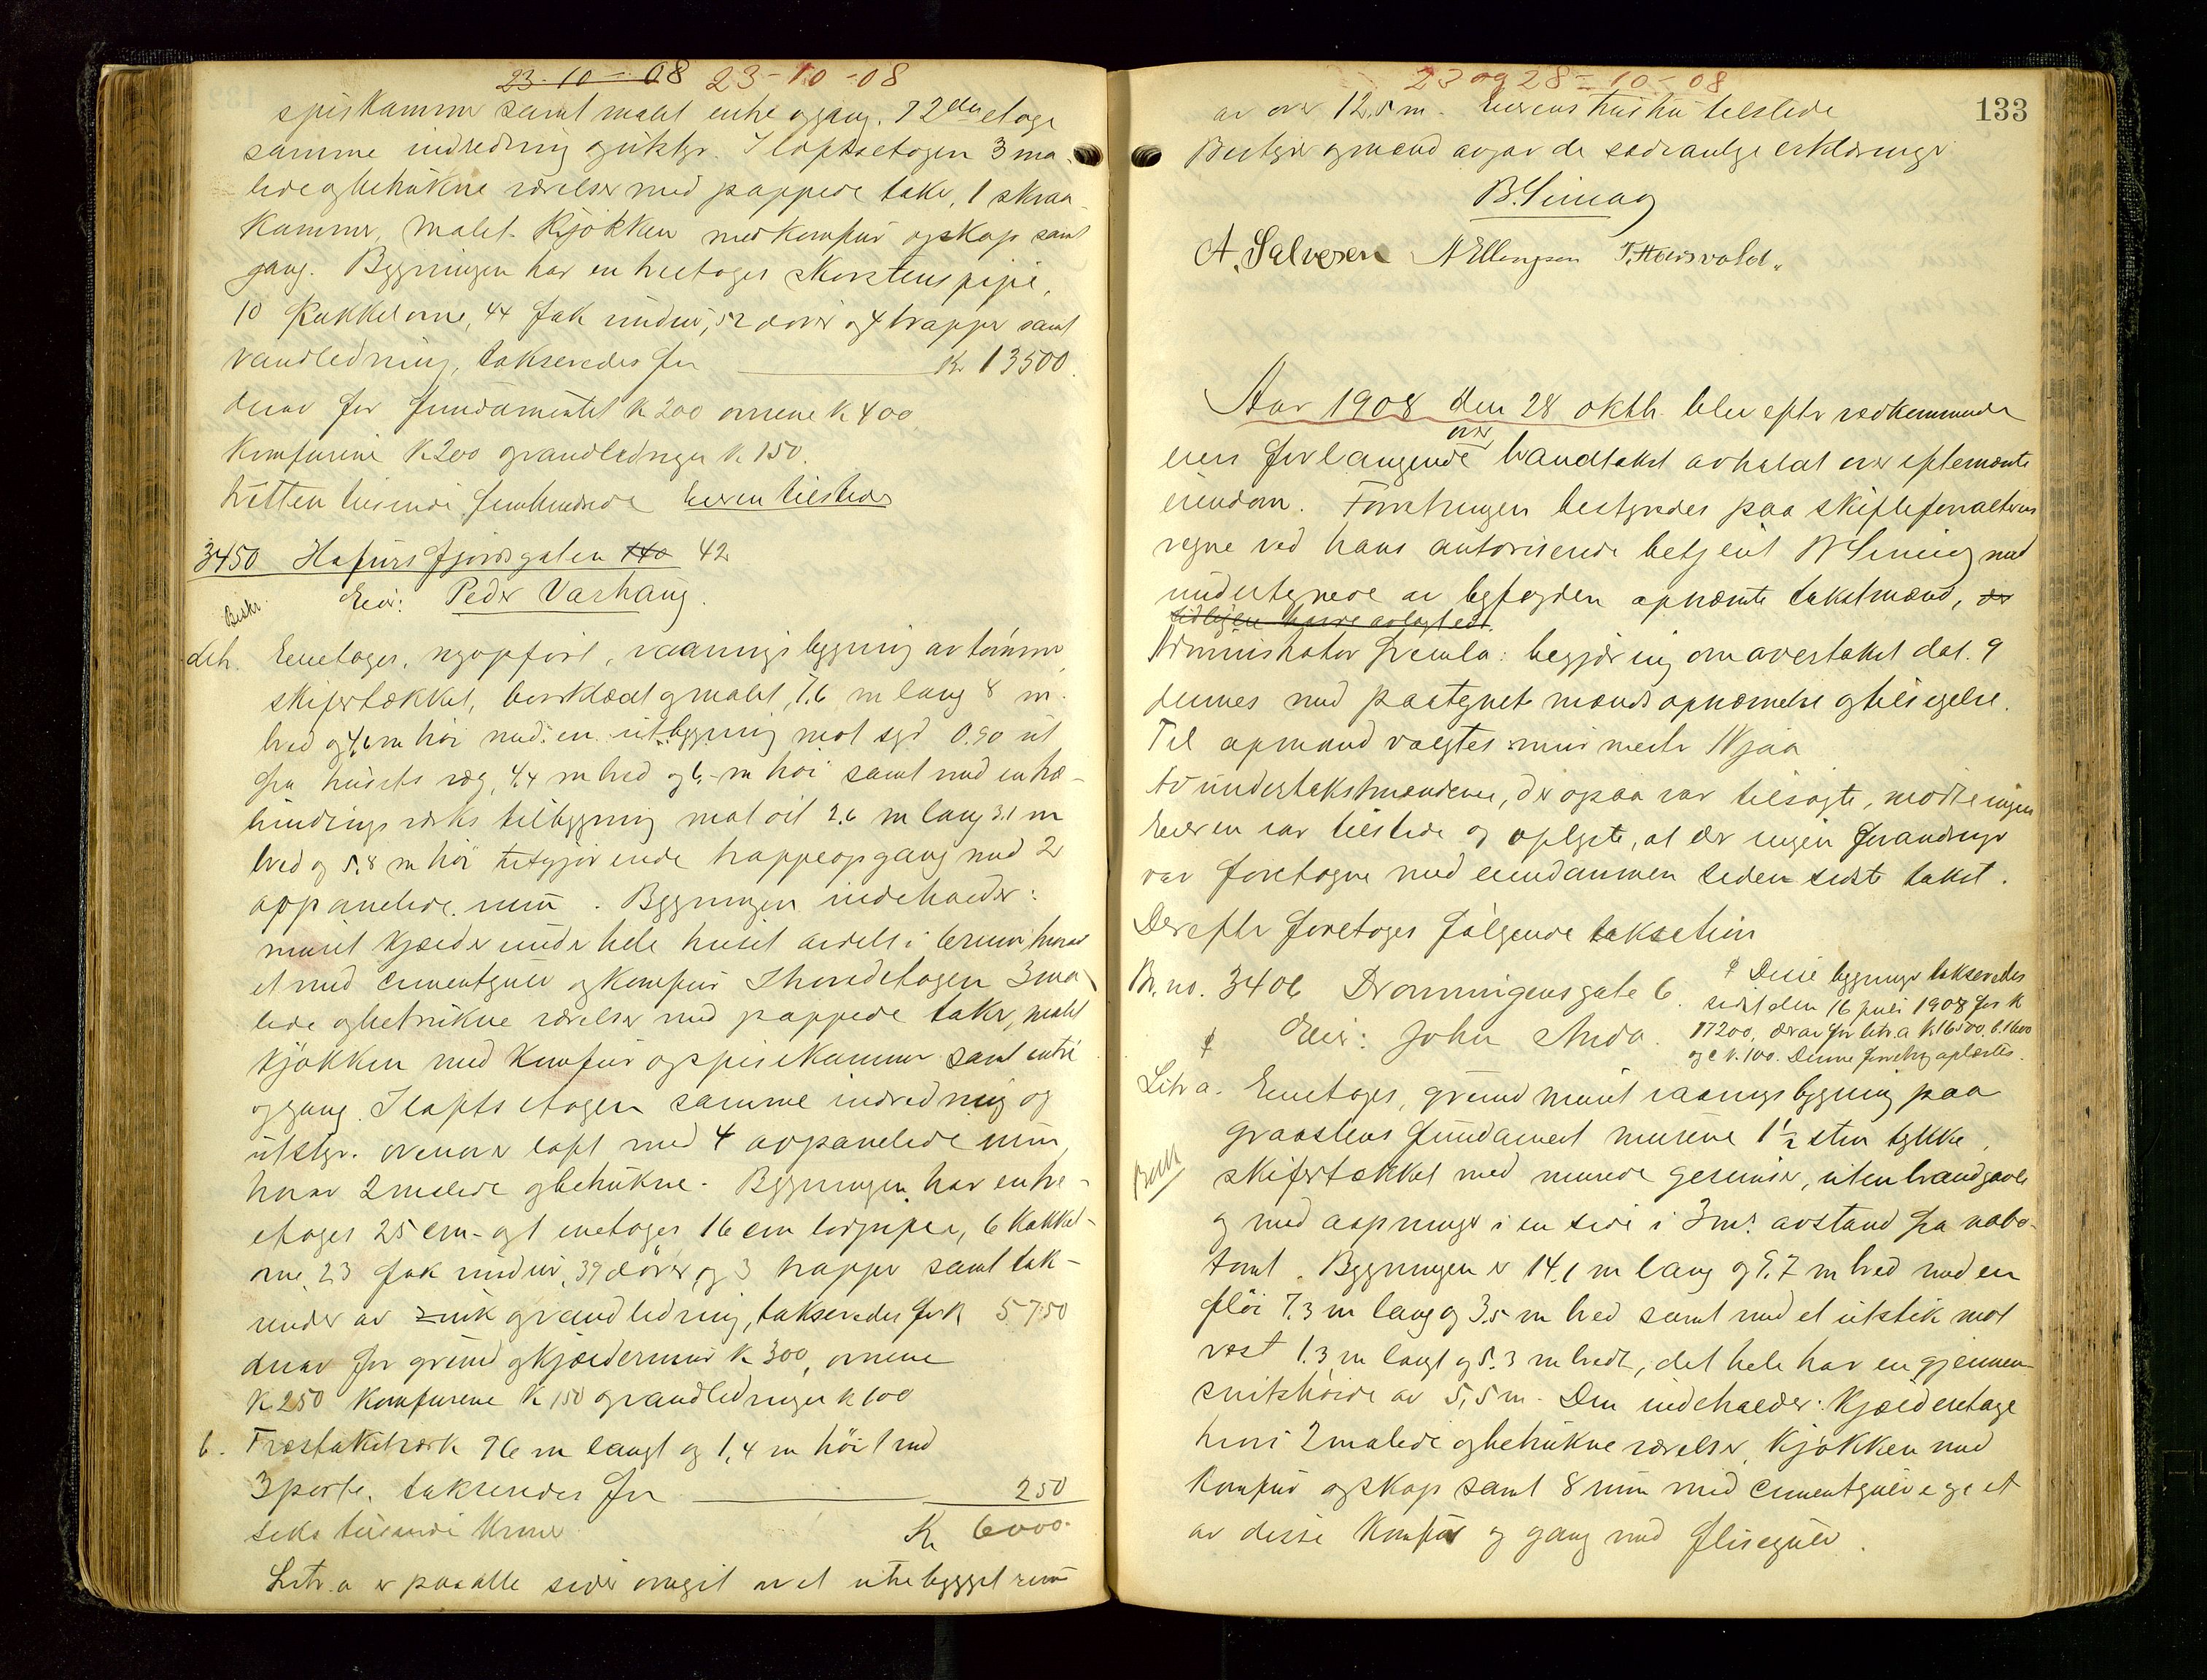 23-10-08 23-10-08
spiskammer samt malet entre og gang. I 2den etage
samme indredning og utstyr. I loftsetagen 3 ma-
lede og betrukne værelser med pappede take, 1 skraa-
kammer, malet kjøkken med komfur og skap samt
gang. Bygningen har en treetages skorstenspipe,
10 kakkelovne, 44 fak vinduer, 52 dører og 4 trapper samt
vandledning, takseredes for Kr 13500.
derav for fundamentet K 200 ovnene K 400
komfurene K 200 og vandledningen K 150.
tretten tusende femhundrede Eieren tilstede
3450 Hafursfjordsgaten 140 42
Beskr. Eier: Peder Varhaug.
Litr. Enetages, nyopført, vaaningsbygning av tømmer
skifertækket, bordklædt og malet, 7.6 m lang 8 m
bred og 4,6 m høi med en utbygning mot syd 0.90 ut
fra husets væg, 4,4 m bred og 6,- m høi samt med en træ-
bindingsverks tilbygning mot øst 2.6 m lang 3.1 m
bred og 5,8 m høi utgjørende trappeopgang med 2
oppanelede rum. Bygningen indeholder:
muret kjælder under hele huset avdelt i 6 rum, hvorav
et med cementgulv og komfur I hovedetagen 3 ma-
lede og betrukne værelser med pappede taker, malet
kjøkken med komfur og spisekammer samt entre
og gang. I loftsetagen samme indredning og
utstyr. ovenover loft med 4 avpanelede rum,
hvorav 2 malede og betrukne. Bygningen har en tre-
etages 25 cm- og 1 enetages 16 cm rørpipe, 6 kakkel-
ovne, 23 fak vinduer, 39 dører og 3 trapper samt tak-
render av zink og vandledning, takseredes for K 5750
derav for grund og kjældermur K 300, ovnene
K 250 komfurene K 150 og vandledningen K 100
b. Træstakitværk 96 m langt og 1,4 m høit med
3 porte, takseredes for 250
seks tusende kroner Kr 6000.
Litr. a er paa alle sider omgit av et utebygget rum
23 og 28-10-08
133
av over 12.5 m. Eierens hustru tilstede
Bestyrer og mænd avgav de sedvanlige erklæringer
B. Simag
A. Salvesen A Ellingsen T. Hauvold.
Aar 1908 den 28 oktb. blev efter vedkommende
eiers forlangende over brandtakst avholdt over efternævnte
eiendom. Forretningen bestyredes paa skifteforvalterens
vegne ved hans autoriserende betjent B Simag med
undertegnede av byfogden opnævnte takstmænd, der
tidligere have avlagt ed.
Administrator fremla: begjæring om overtakst dat. 9
dennes med paategnet mænds opnævnelse og tilsigelse.
Til opmand valgtes murmester Njaa
Av undertakstmændene, der ogsaa var tilsagte, mødte ingen
Eieren var tilstede og oplyste, at der ingen forandringer
var foretagne med eiendommen siden sidste takst.
Derefter foretoges følgende taksation
Br. no. 3406 Dronningensgate 6. ₵ Disse bygninger takseredes
sidst den 16 juli 1908 for K
₵ Eier: John Anda. 17200, derav for litr. a K 16500, b. 1600
og c K. 100. Denne forretning oplæstes.
Litr a. Enetages, grundmuret vaaningsbygning paa
graastens fundament murene 1½ sten tykke,
Beskr skifertækket med murede gesimser, uten brandgavle
og med aapninger i en side i 3 m's avstand fra nabo-
tomt. Bygningen er 14,1 m lang og 9.7 m bred med en
fløi 7.3 m lang og 3.5 m bred samt med et utstik mot
vest 1.3 m langt og 5.3 m bredt, det hele har en gjennem-
snitshøide av 5,5 m. Den indeholder: Kjælderetage
hvori 2 malede og betrukne værelser, kjøkken med
komfur og skap samt 8 rum med cementgulv og i et
av disse komfur og gang med flisegulv.